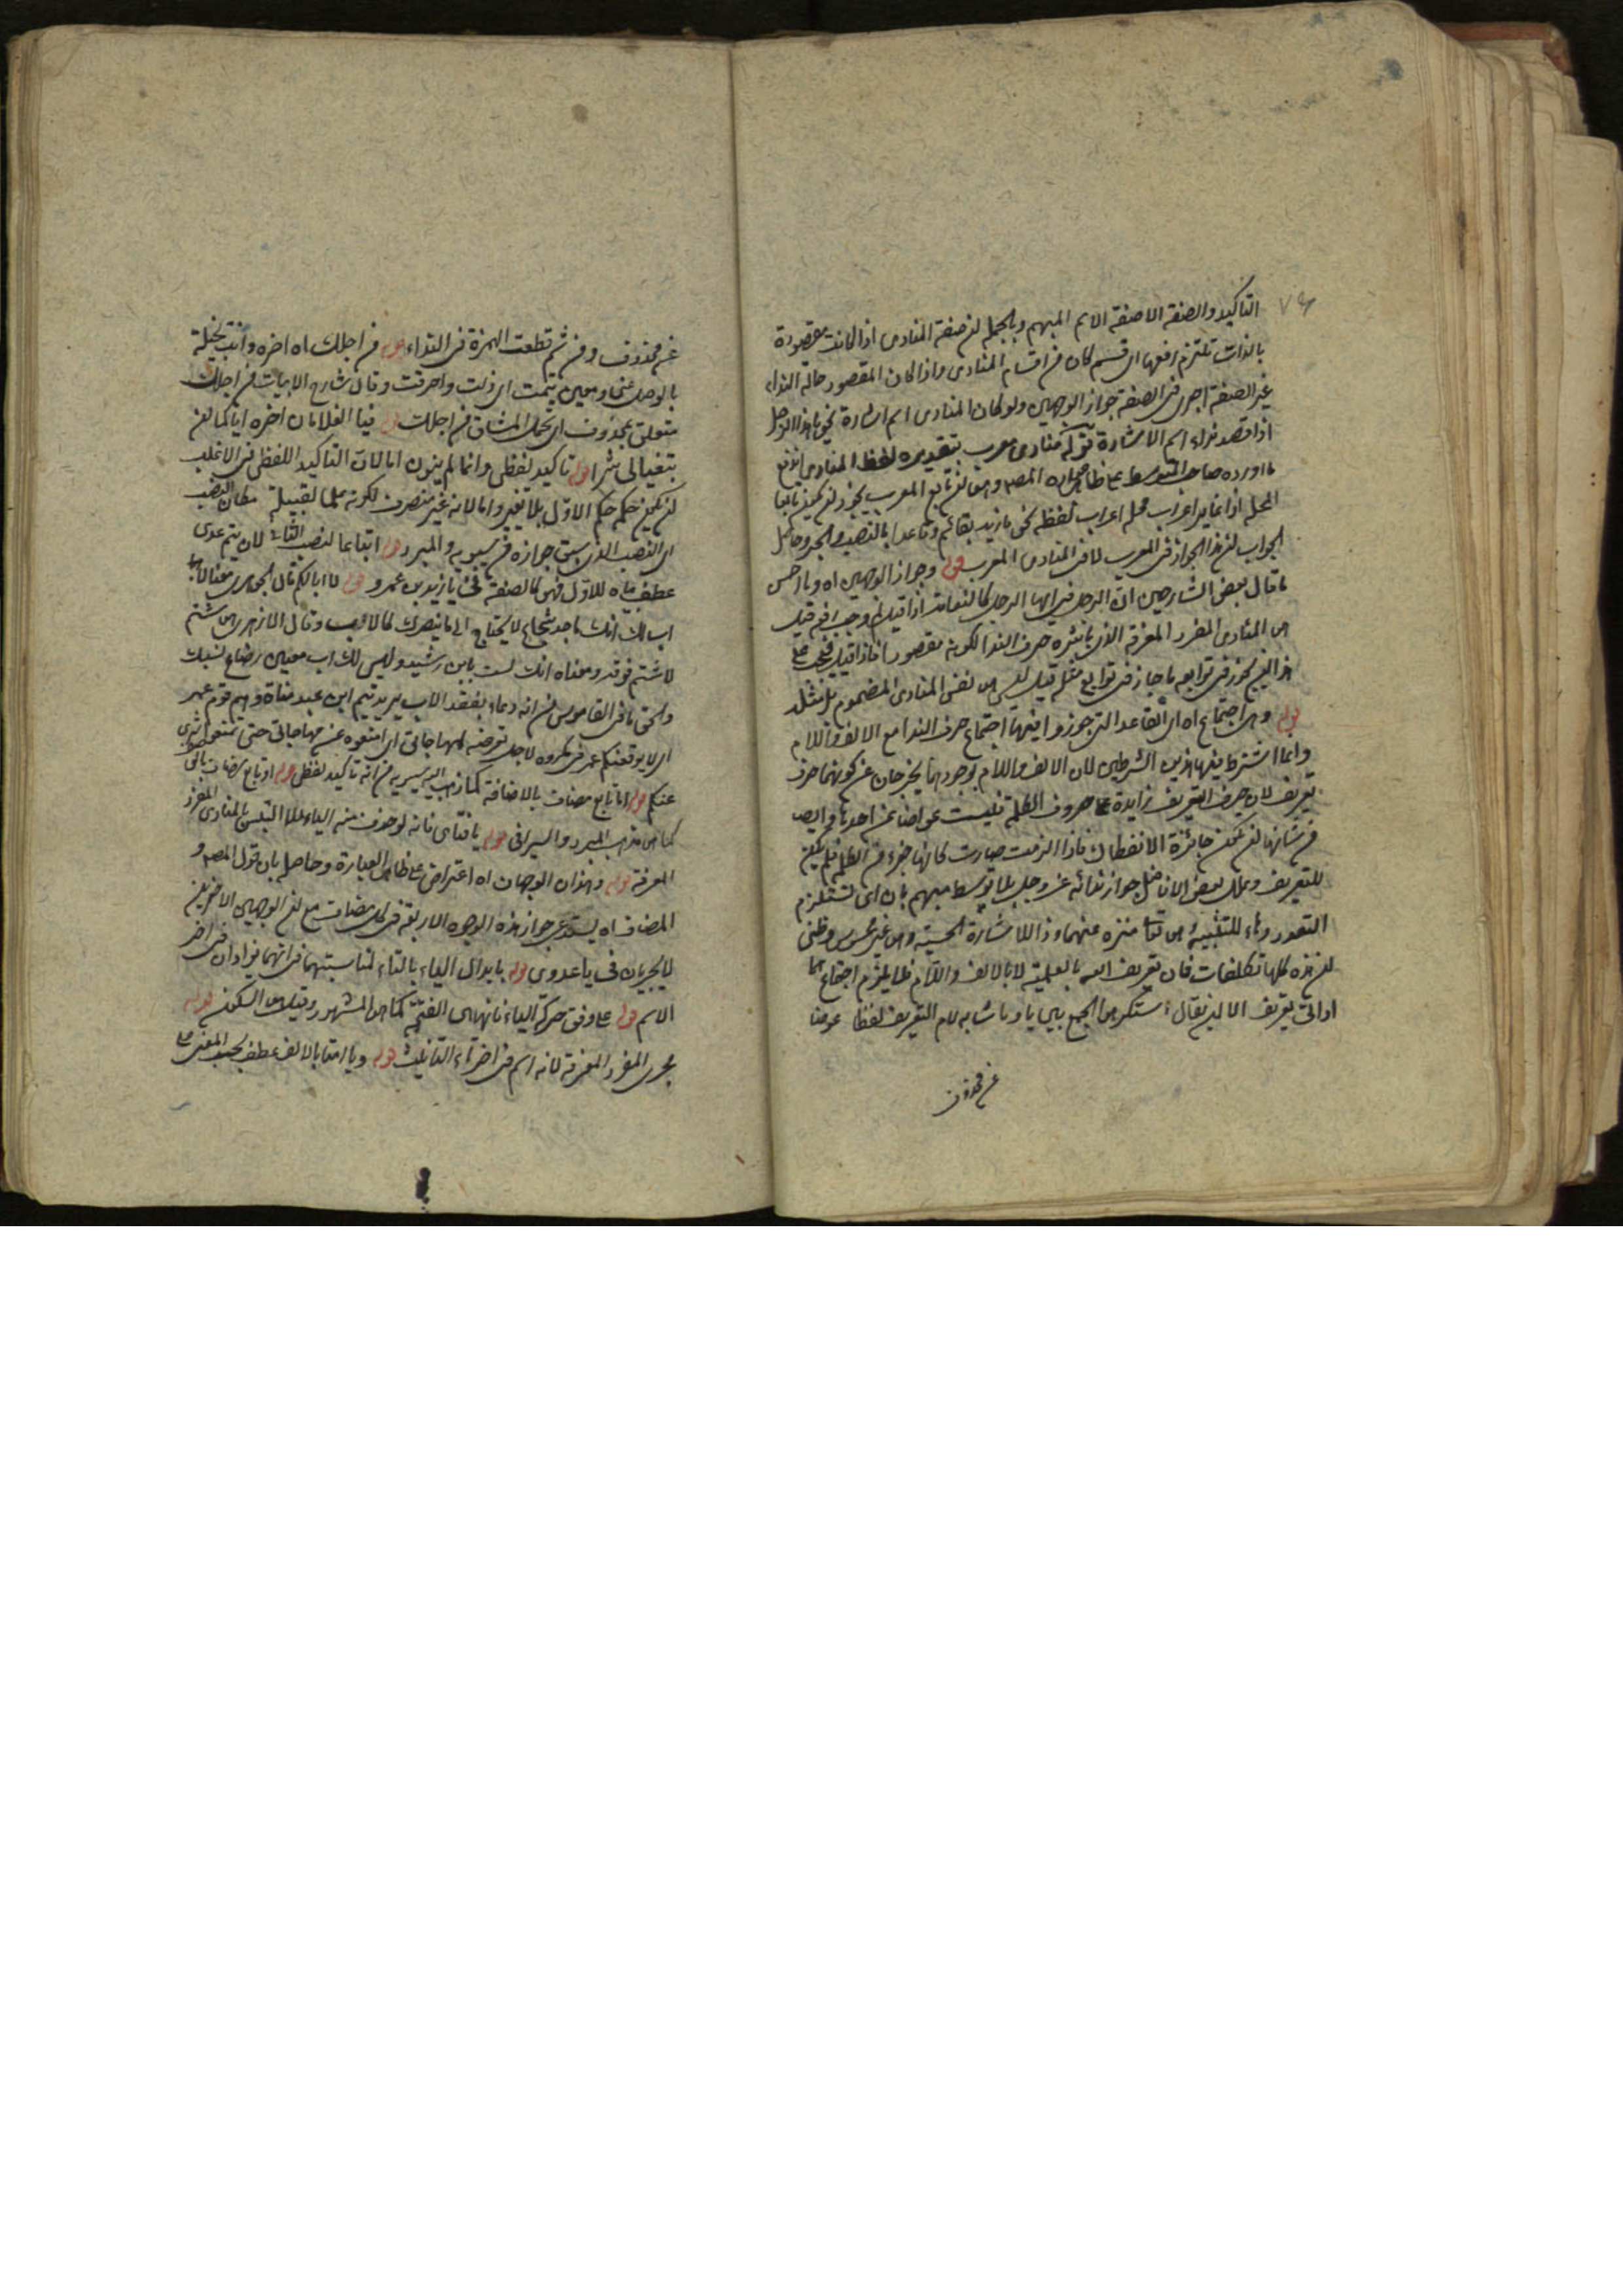 ٧٤
التاكيد والصفة الا صفة الاسم المبهم وبالجملة ان صفة المنادى اذا كانت مقصودة
بالذات تلتزم رفعها اى قسم كان من اقسام المنادى واذا كان المقصود حالة النداء
غير الصفة اجرى فى الصفة جواز الوجهين ولو كان المنادى اسم اشارة نحو يا هذا الرجل
اذا قصد نداء اسم الاشارة قوله منادى معرب تقديره لفظ المنادى
ما اورده صاحب المتوسط على ظاهر المص وهو ان تابع المعرب يجوز ان يكون تابعا
لمحله اذا غاير اعراب محله اعراب لفظه نحو ما زيد بقائم وقاعدا بالنصب والجر وحاصل
الجواب ان هذا الجواز فى المعرب لا فى المنادى المعرب قوله وجواز الوجهين اه وما احسن
ما قال بعض الشارحين ان الرجل فى ايها الرجل كالنعامة اذا قيل
هى المنادى المفرد المعرفة الذى باشره حرف الندا لكونه مقصودا فاذا قيل
هذا يجوز فى توابعه ما جاز فى توابع مثله قيل ليس هو نفس المنادى المضموم بل مثله
قوله وهى اجتماع اه اى القاعدة التى جوزوا فيها اجتماع حرف الندا مع الالف واللام
وانما اشترط فيها هذين الشرطين لان الالف واللام بوجودهما يخرجان عن كونهما حرف
تعريف لان حرف التعريف زايدة على حروف الكلمة فليست عوضا عن احدها وايضا
من شانها ان تكون جائزة الانفصال فاذا الزمت صارت كانها جزء من الكلمة فلم يكن
للتعريف وعلل بعض الافاضل جواز ندائه عز وجل بلا توسط مبهم بان اى تستلزم
التعدد وهاء للتنبيه هو تعا منزه عنهما وذا للاشارة الحسية وهو غير محسوس وظنى
ان هذه كلها تكلفات فان تعريف الله بالعلمية لا بالالف واللام فلا يلزم اجتماع
اداتى تعريف الا ان يقال استكره الجمع بين يا وما شابه لام التعريف لفظا عوضا
عن محذوف
عن محذوف ومن ثم قطعت الهمزة فى النداء قوله من اجلك اه اخره وانت بخيلة
بالوصل عنى ومعنى تيمت اى ذللت واحرقت وقال شارح الابيات من اجلك
متعلق بمحذوف اى تحمل المشاق من اجلك قوله فيا الغلامان اخره اياكما ان
تبغيانى شرا قوله تاكيد لفظى وانما لم ينون اما لان التاكيد اللفظى فى الاغلب
ان يكون حكمه حكم الاول بلا تغيير واما لانه غير منصرف لكونه علما لقبيلة مكان النصب
اى النصب الذى سبق جوازه من سيبويه والمبرد قوله اتباعا لنصب الثانى لان تيم عدى
عطف بيان للاول فهو كالصفة فى يا زيد بن عمرو قوله لا ابا لكم قال الجوهرى معنى لا
اب لك انك ماجد شجاع لا يحتاج الى ما ينصرك كالاب وقال الازهرى هى شتم
لا شتم فوقه ومعناه انك لست بابن رشيد وليس لك اب معين رضاع نسبك
والحق ما فى القاموس من انه دعاء بفقد الاب يريد تيم ابن عبد مناة وهم قوم عمر
اى لا يوقعنكم عمر فى مكروه لاجل تعرضه للمهاجاتى اى امنعوه عن مهاجاتى حتى تمنعوا شرى
عنكم قوله اما تابع مضاف بالاضافة كما ذهب اليه سيبويه من انه تاكيد لفظى قوله او تابع مضاف
كما هو مذهب المبرد والسيرافى قوله يا فتاى فانه لو حذف منه الياء لالتبس بالمنادى المفرد
المعرفة قوله وهذان الوجهان اه اعتراض على ظاهر العبارة وحاصله بان قول المص و
المضاف اه يستدعى جواز هذه الوجوه الاربعة فى كل مضاف مع ان الوجهين الاخيرين
لا يجريان فى يا عدوى قوله بابدال الياء بالتاء لمناسبتهما فى انهما يزادان فى اخر
الاسم قوله على وفق حركة الياء فانها هى الفتح كما هو المشهور وقيل هى السكون قوله
مجرى المفرد المعرفة لانه اسم فى اخره تاء التانيث قوله ويا امتا بالالف عطف بحسب المعنى على